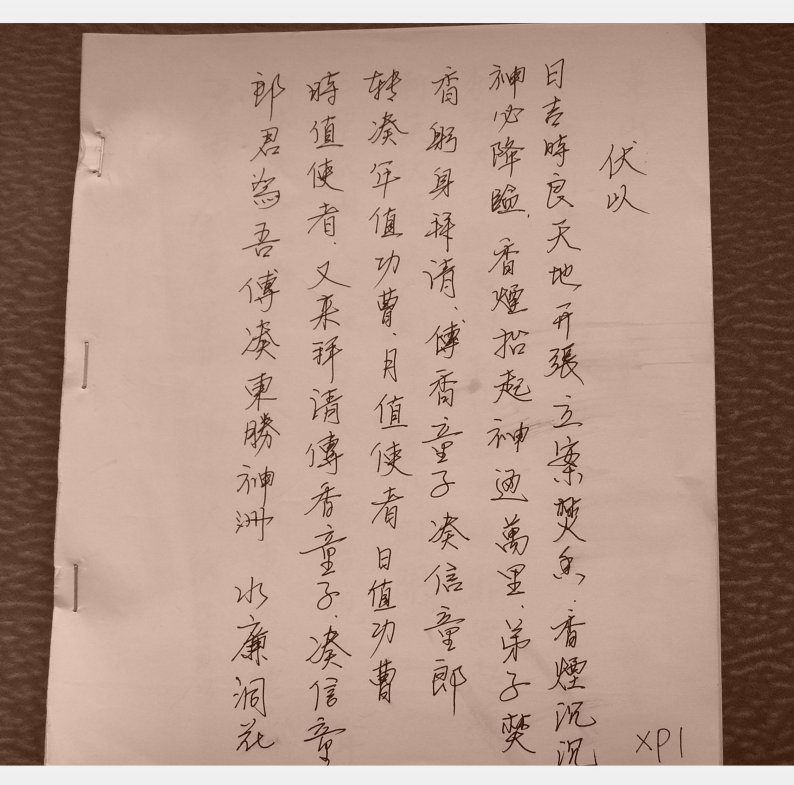 伏以
日吉時良天地開張立案焚香.香煙沉沉
神必降臨.香煙抬起神通萬里.弟子焚
香躬身拜請.傳香童子凑信童郎
转凑年值功曹.月值使者日值功曹
時值使者.又来拜請傳香童子.凑信童
郎君為吾傳凑東勝神洲 水廉洞花
XP1